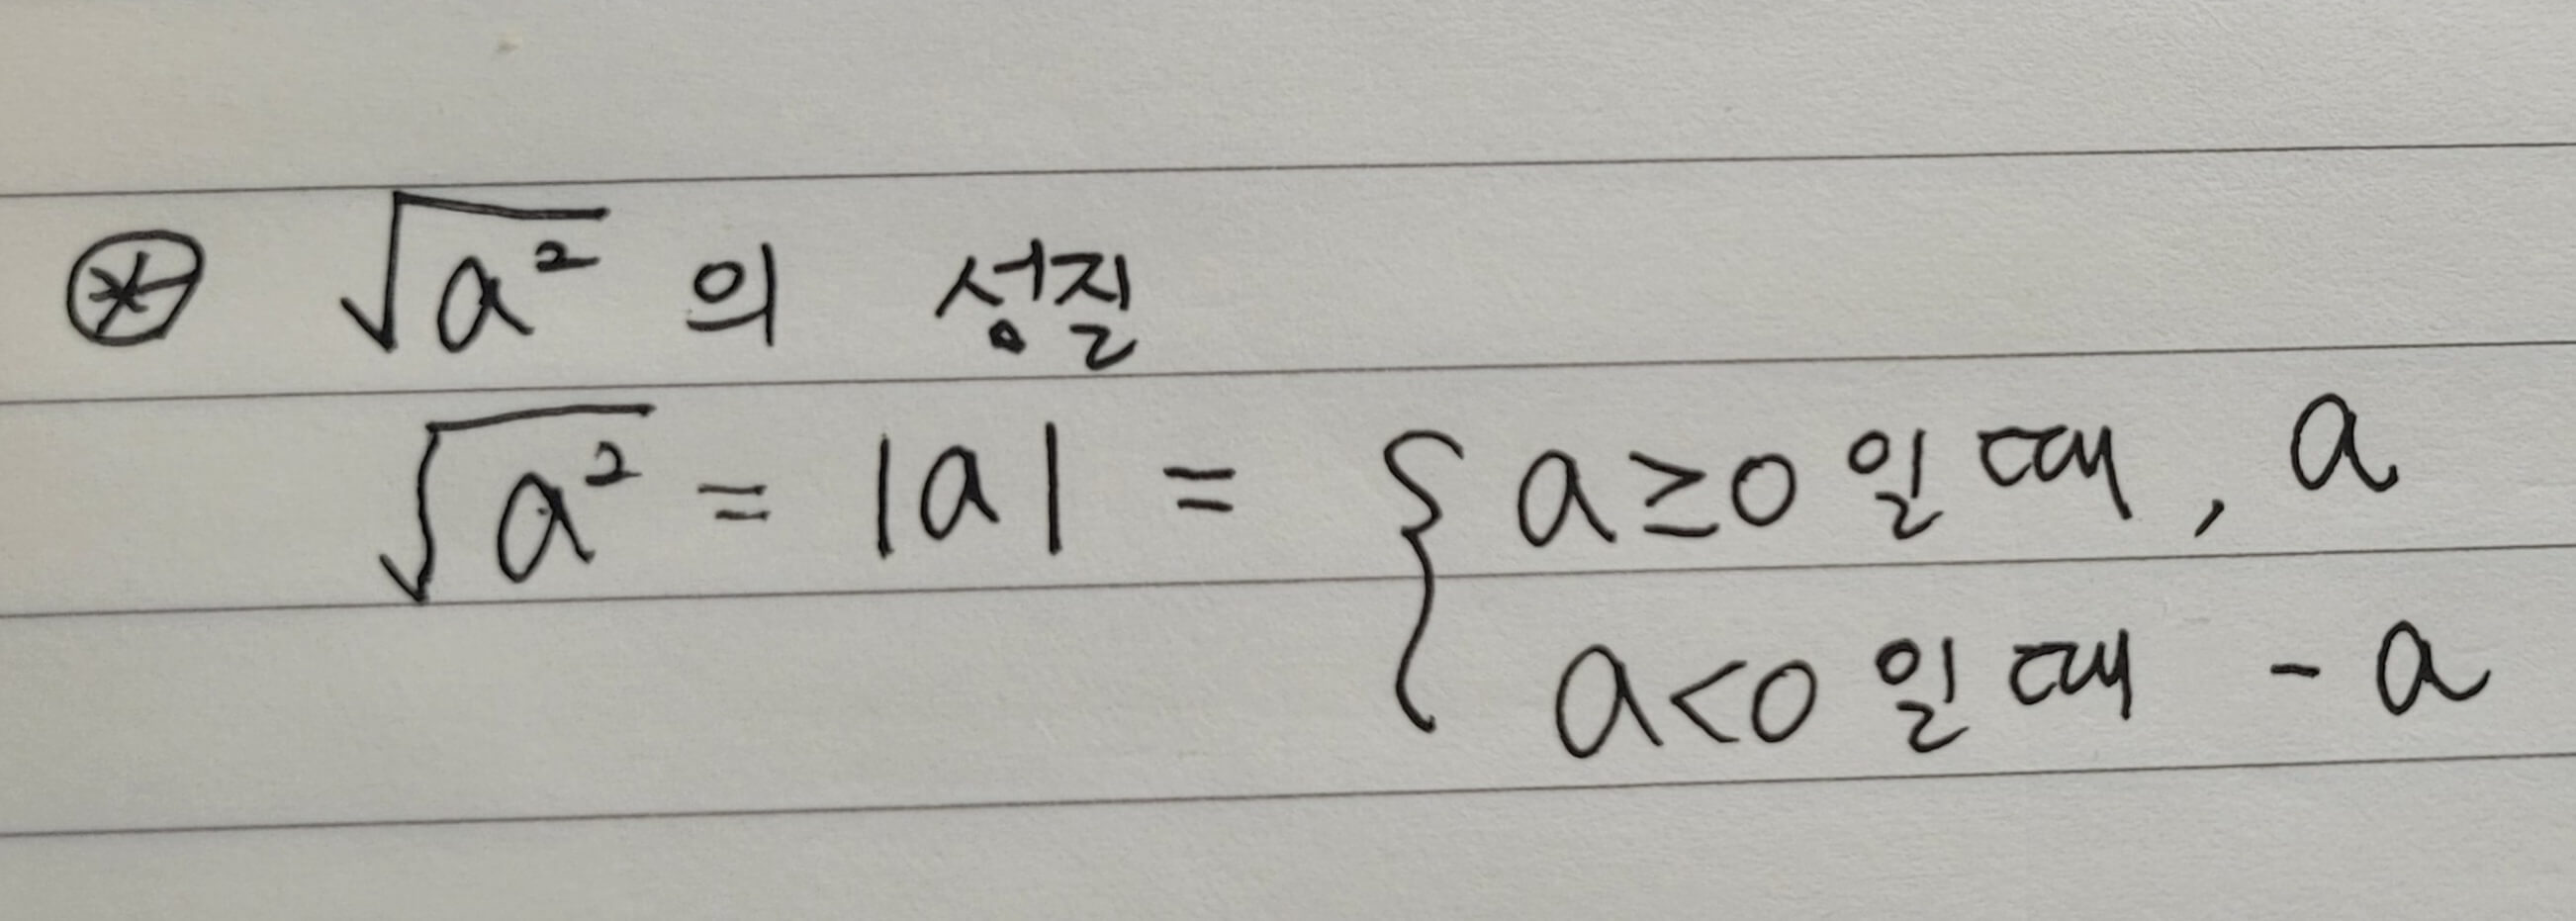 ⊛ √a² 의 성질
√a² = |a| = { a≥0 일 때, a
a<0 일 때 -a